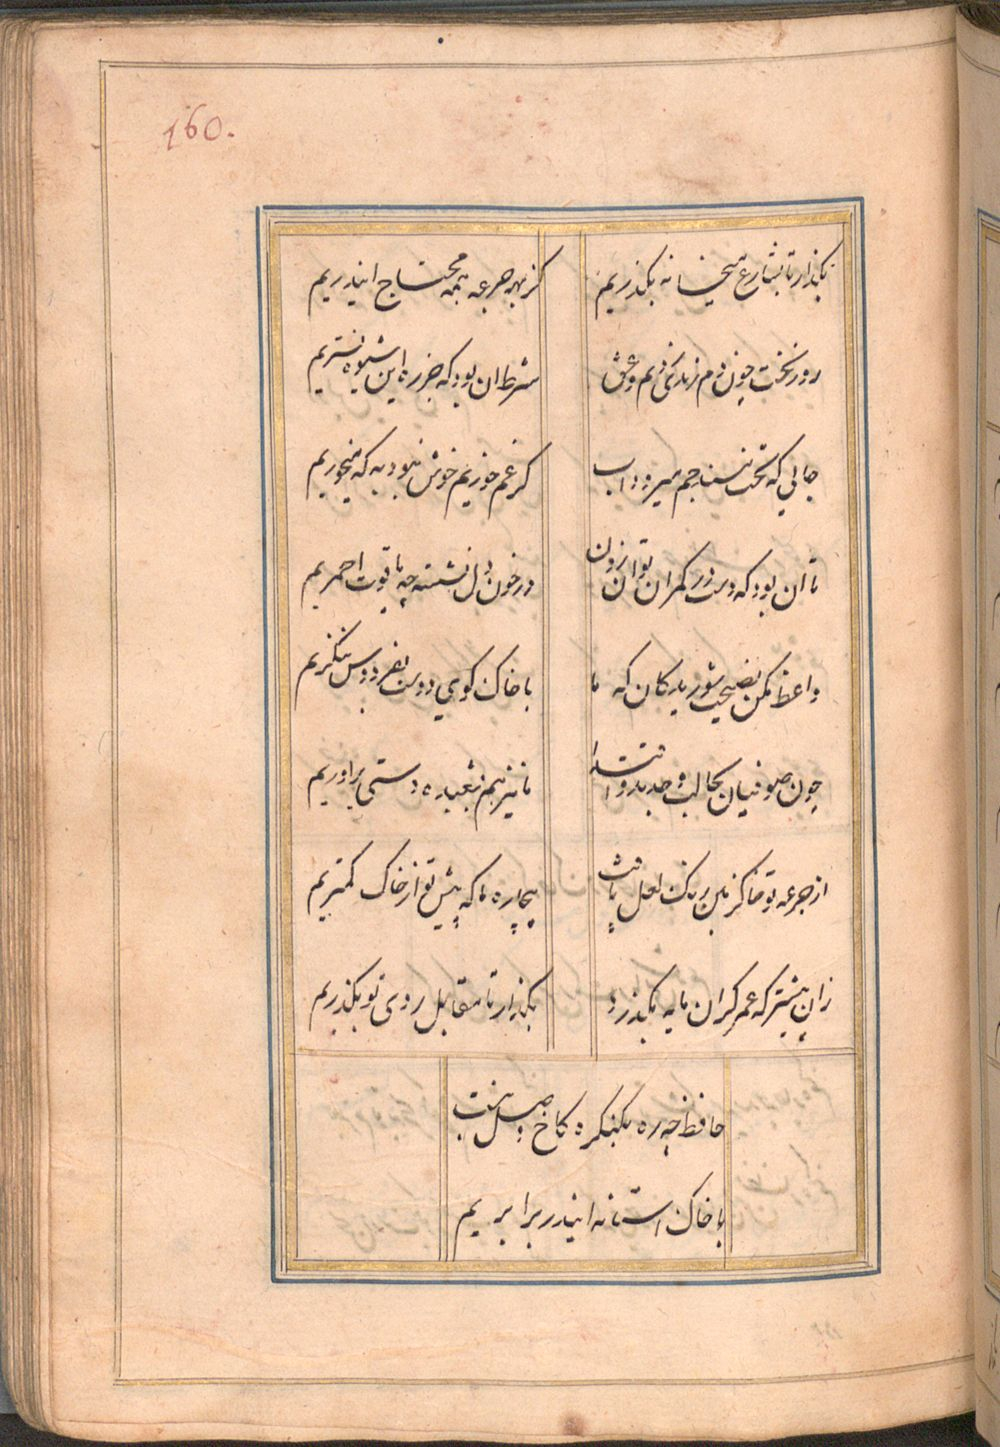 160.
بکذار تا بشارع میخانه بکذریم
کز بهر جرعه همه محتاج ایندریم
روز نخست چون دم رندی زدیم و عشق
شرط ان بود که جز ره این شیوه نسپریم
جایی که تخت مسند جم میرود باب
کر غم خوریم خوش نبود به که میخوریم
تا ان بود که دست در کمر ان توان زدن
در خون دل نشسته چه یاقوت احمریم
واعظ مکن نصیحت شوریدکان که ما
با خاک کوی دوست بفردوس ننکریم
چون صوفیان بحالت وجدند و اقتدا
ما نیز هم بشعبده دستی براوریم
از جرعه تو خاک زمین رنک لعل یافت
بیچاره ما که پیش تو از خاک کمتریم
زان پیشتر که عمر کران مایه بکذرد
بکذار تا مقابل روی تو بکذریم
حافظ چه ره بکنکره کاخ وصل نیست
با خاک استانه ایندر برابریم